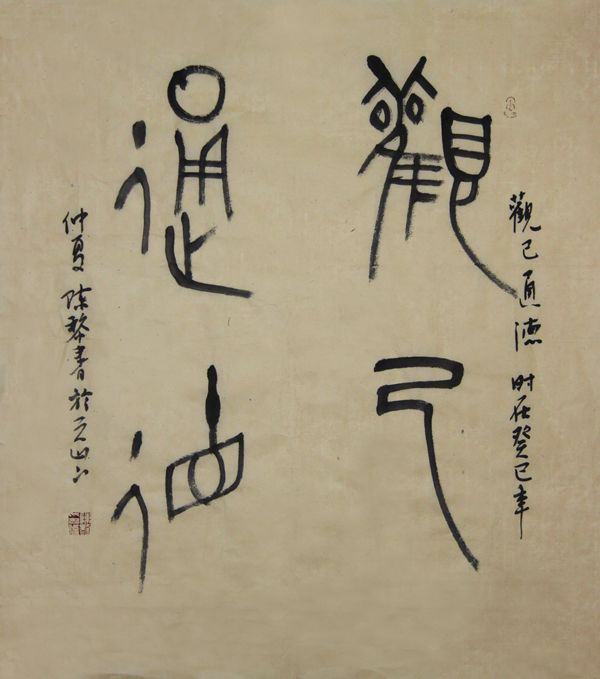 觀己通德 时在癸巳年
觀己
通德
仲夏 陈黎書於天山下